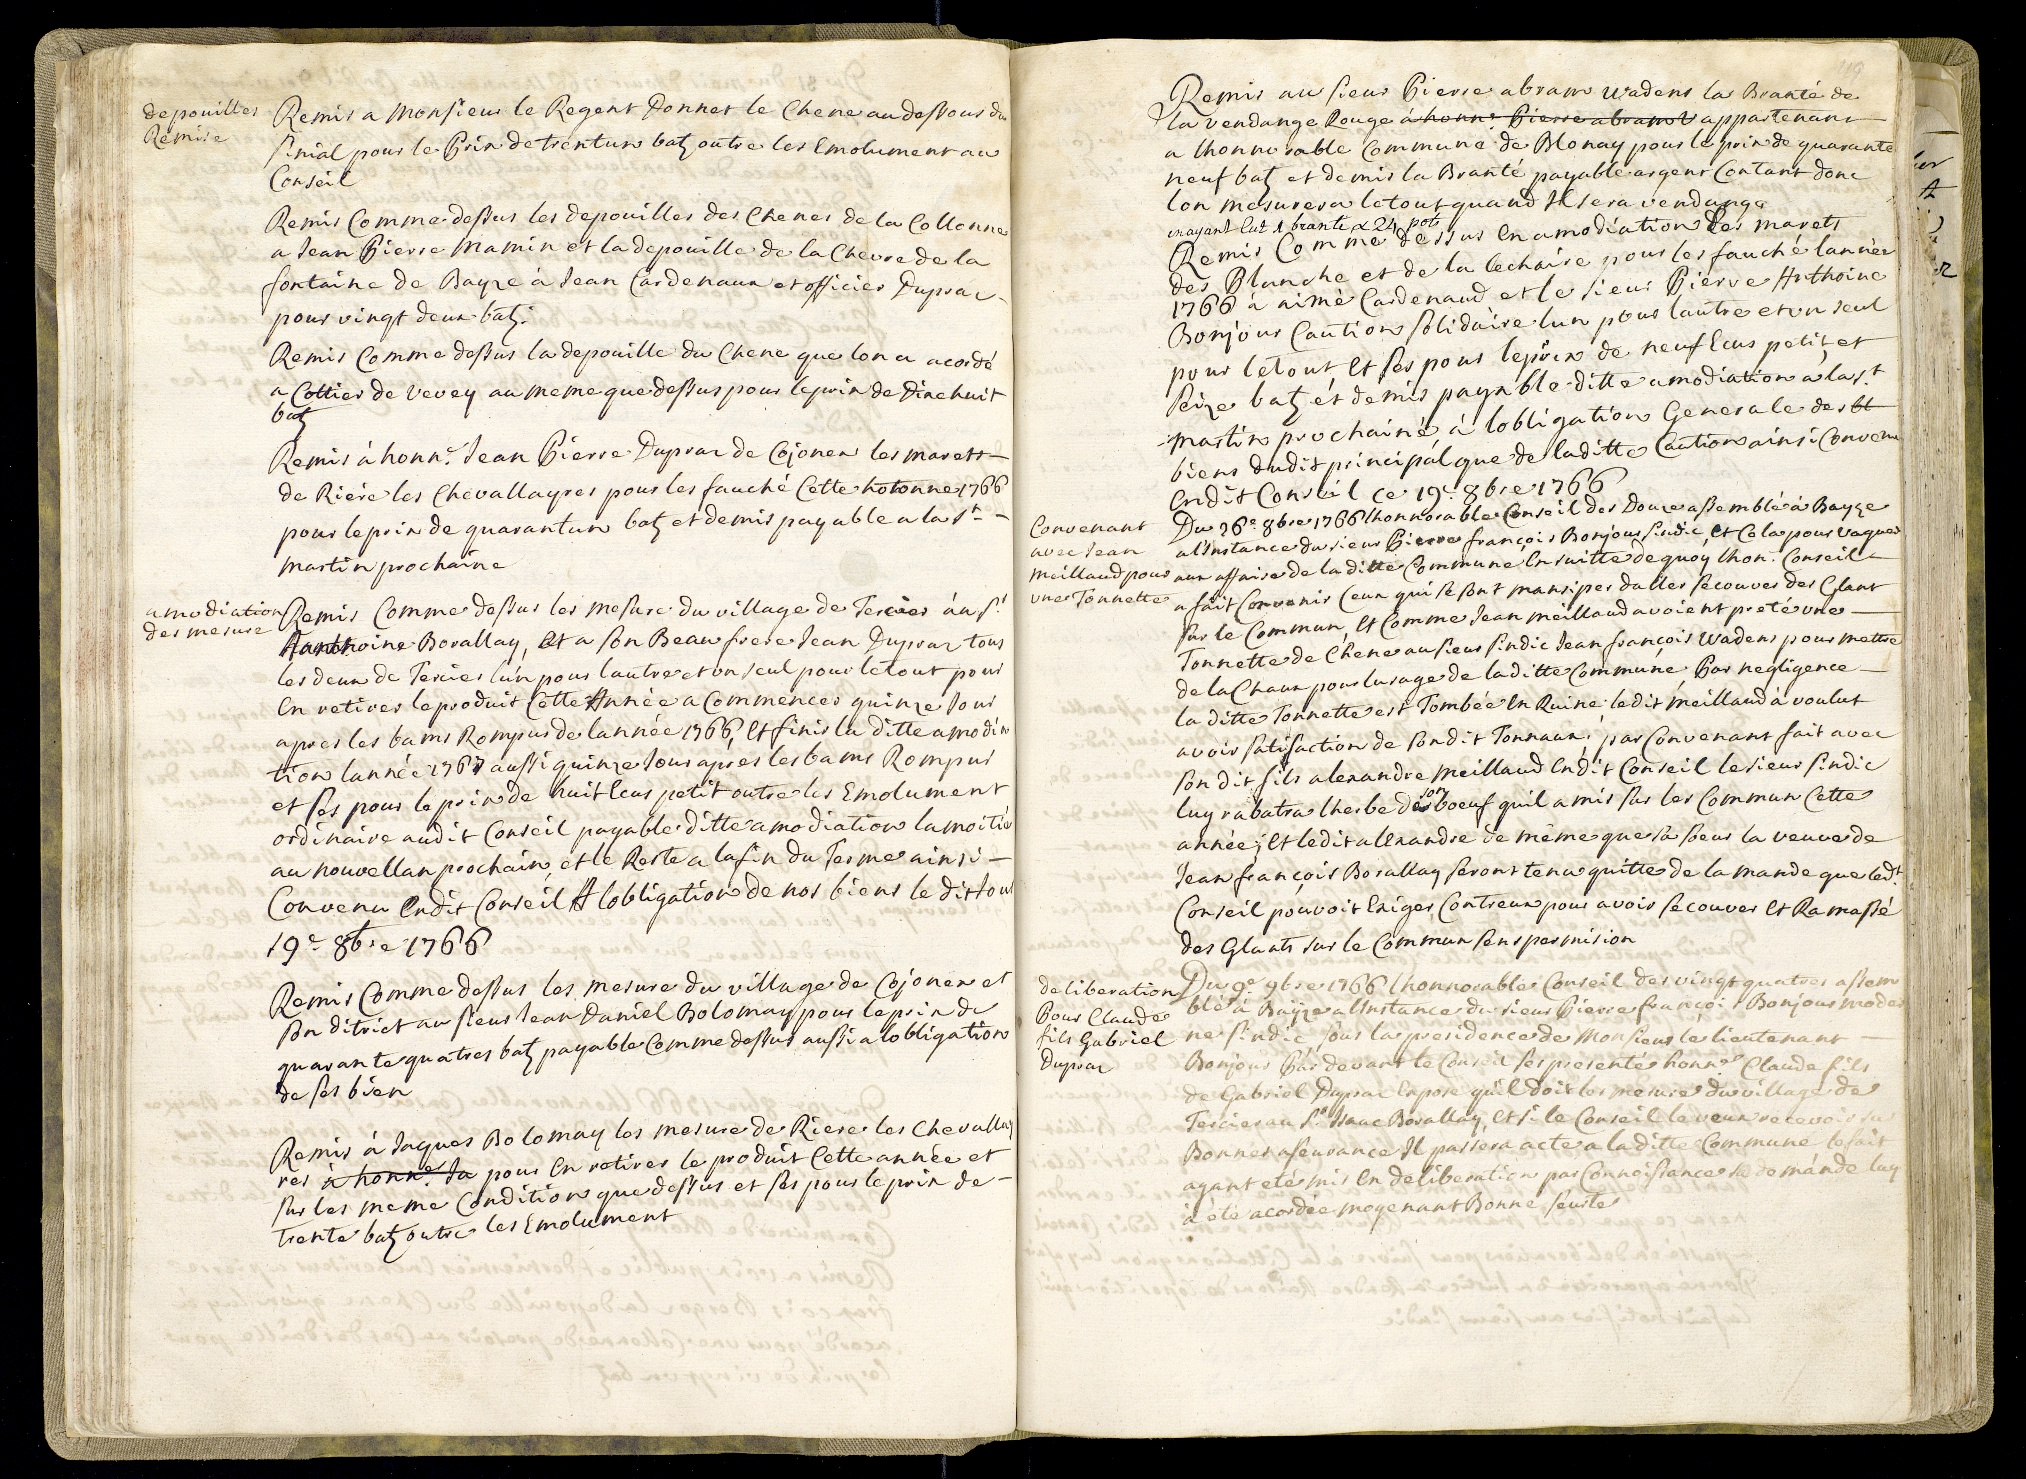 depouilles
Remise
Remis a Monsieur le Regent Donnet le Chene au dessous du
sinial pour le Prix de trentun batz outre les Emolument au
Conseil
Remis Comme dessus les depouilles des Chenes de la Collonne
a Jean Pierre Mamin et la depouille de la Chevre de la
fontaine de Bayze à Jean Cardenaux et officier Dupraz
pour vingt deux batz.
Remis Comme dessus la depouille du Chene que lon a acordé
a Cottier de Vevey au meme que dessus pour le prix de Dixehuit
batz
Remis à honn.e Jean Pierre Dupraz de Cojonex les marets
de Riere les Chevallayres pour les fauché Cette hotonne 1766
pour le prix de quarantun batz et demis payable a la St
martin prochaine
amodiation
des mesure
Remis Comme dessus les mesure du village de Tercier à un Sr
Anthoine Borallay, et a son Beau frere Jean Dupraz tous
les deux de Tercier lun pour lautre et un seul pour letout pour
En retirer le produit Cette Année a Commencer quinze Jour
apres les bams Rompus de lannée 1766, Et finir la ditte amodia
tion lannée 1767 aussi quinze Jour apres les bams Rompus
et ses pour le prix de huit Ecus petit outre les Emolument
ordinaire audit Conseil payable ditte amodiation la moitié
au nouvellan prochain, et le Reste a la fin du Terme ainsi
Convenu Endit Conseil A lobligation de nos biens le dit Jour
19e 8bre 1766
Remis Comme dessus les mesure du village de Cojonex et
son ditrict au sieur Jean Daniel Bolomay pour le prix de
quarante quatres batz payable Comme dessus aussi a lobligation
de ses bien
Remis à Jaques Bolomay les mesure de Riere les Chevallay
res à honn.e Ja pour En retirer le produit Cette année et
sur les meme Condition que dessus et ses pour le prix de
Trente batz outre les Emolument
Remis au sieur Pierre abram Wadens la Branté de
la vendange Rouge à honn.e Pierre abram V appartenant
a lhonnorable Commune de Blonay pour le prix de quarante
neuf batz et demis la Branté payable argent Contant donc
lon mesurera letout quand Il sera vendange
nayant Eut 1 brante & 24 pots
Remis Comme dessus En amodiation Les marets
des Blanche et de la lechaire pour les fauché lannée
1766 à aimé Cardenaud et le sieur Pierre Anthoine
Bonjour Caution solidaire lun pour lautre et un seul
pour letout Et ses pour le prix de neuf Ecus petit, et
seize batz et demis payable ditte amodiation a la St
martin prochaine à lobligation Generale des bt
biens dudit principal que de laditte Caution ainsi Convenu
Endit Conseil ce 19e 8bre 1766
Convenant
avec Jean
meillaud pour
une Tonnette
Du 26e 8bre 1766 lhonnorable Conseil des Douze assemblé à Bayze
a linstance du sieur Pierre françois Bonjour sindic, Et Cela pour vaquer
aux affaire de la ditte Commune En suitte de quoy lhon. Conseil
a fait Convenir Ceux qui se sont mansiper daller secouver des Glant
sur le Commun, Et Comme Jean meillaud avoient preté une
Tonnette de Chene au sieur sindic Jean françois Wadens pour mettre
de la Chaux pour lusage de laditte Commune, Par negligence
la ditte Tonnette est Tombée En Ruine, ledit meillaud à voulut
avoir satisfaction de sondit Tonnaux, par Convenant fait avec
son dit fils alexandre meillaud Endit Conseil le sieur sindic
luy rabatra lherbe de son boeuf quil a mis sur les Commun Cette
année; Et ledit alexandre de même que sa soeur la veuve de
Jean françois Borallay seront tenu quitte de lamande que ledt
Conseil pouvoit Exiger Contreux pour avoir secouver Et Ramassé
des Glants sur le Commun sens permision
deliberation
Pour Claude
fils Gabriel
Dupraz
Du 9e 9bre 1766 lhonnorable Conseil des vingt quatres assem
blé à Bayze a linstance du sieur Pierre françois Bonjour moder
ne sindic sous la presidence de Monsieur le lieutenant
Bonjour Par devant le Conseil ses presenté honn.e Claude fils
de Gabriel Dupraz Expose quil doit les mesure du village de
Tercier au Sr Isaac Borallay, Et si le Conseil le veux recevoir sur
Bonnes aseurance Il passera acte a laditte Commune le fait
ayant eté mis En deliberation par Connoissance sa demande luy
à été acordée moyenant Bonne seurté